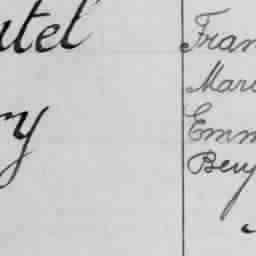 utel
ry
Fran
Mari
Emm
Benj